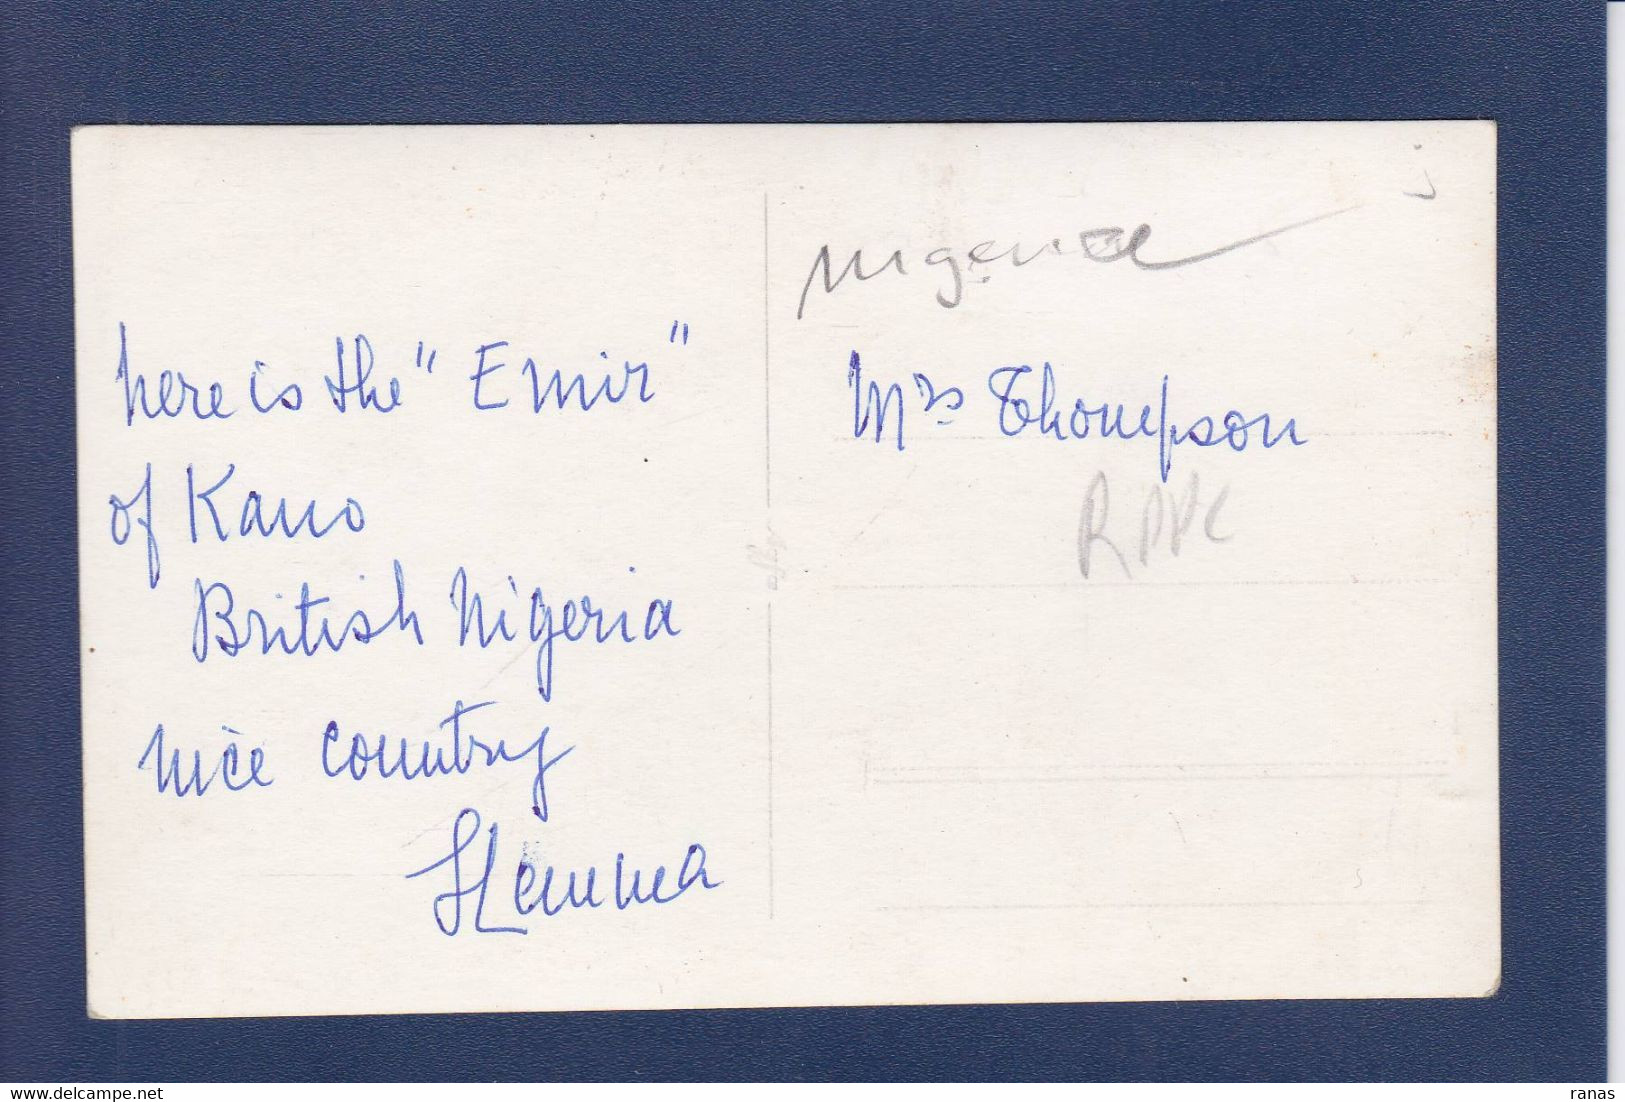 here is the "Emir"
of Kano
British Nigeria
nice country
Mrs Thompson
RPPC
www.delcampe.net
ranas